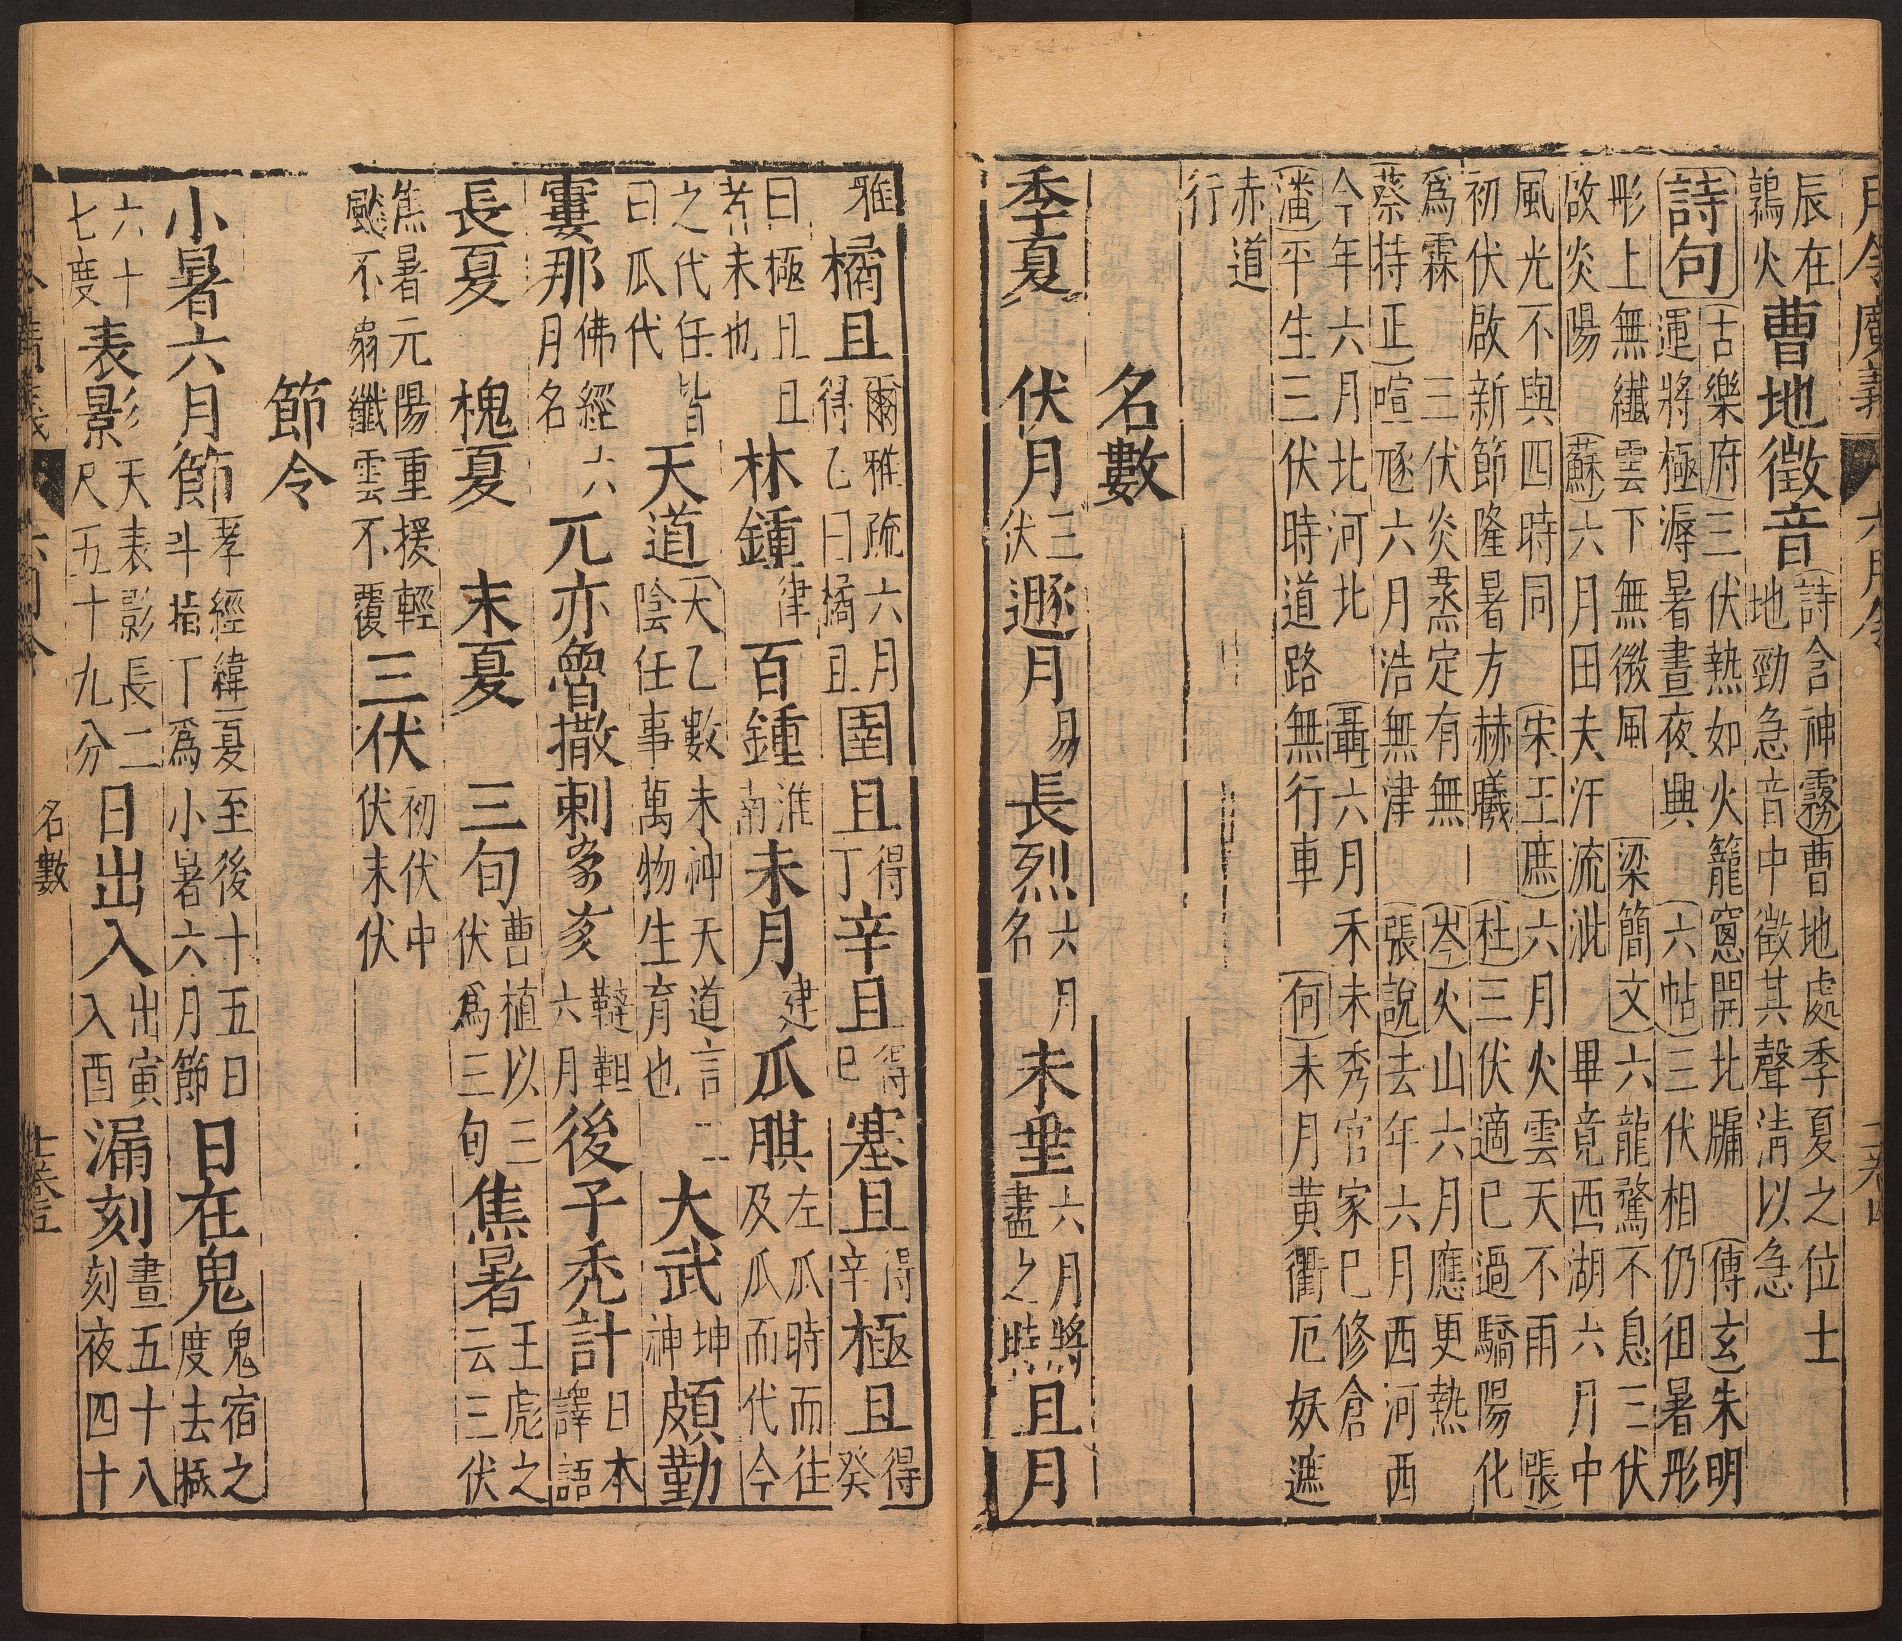 月令廣義 六月令
辰在鶉火 曹地徵音 詩含神霧曹地處季夏之位土地勁急音中徵其聲清以急
詩句 古樂府三伏熱如火籠窗開北牖 傅玄朱明運將極溽暑晝夜興 六帖三伏相仍徂暑彤
彤上無纖雲下無微風 梁簡文六龍騖不息三伏
啟炎陽 蘇六月田夫汗流泚 畢竟西湖六月中
風光不與四時同 宋王廌六月火雲天不雨 張
初伏啟新節隆暑方赫曦 杜三伏適已過驕陽化
為霖 三伏炎蒸定有無 岑火山六月應更熱
蔡持正喧豗六月浩無津 張說去年六月西河西
今年六月北河北 聶六月禾未秀官家已修倉
潘平生三伏時道路無行車 何未月黃衢厄妖遮
赤道
行
名數
季夏 伏月 三伏 遯月 易 長烈 六月名 未垂 六月將盡之時 且月
雅 橘且 爾雅疏六月得乙曰橘且 圉且 得丁 辛且 得己 塞且 得辛 極且 得癸
曰極且且者未也 林鍾 律 百鍾 淮南 未月 建 瓜朞 左瓜時而往及瓜而代今
之代任皆曰瓜代 天道 天乙數未神天道言二陰任事萬物生育也 大武 坤神 頗勤
𡫏那 佛經六月名 兀亦魯撒剌 亥 韃靼六月 後子禿計 日本譯語
長夏 槐夏 末夏 三旬 曹植以三伏為三旬 焦暑 王彪之云三伏
焦暑元陽重援輕飈不扇纖雲不覆 三伏 初伏中伏末伏
節令
小暑六月節 孝經緯夏至後十五日斗指丁為小暑六月節 日在鬼 鬼宿之度去極
六十七度 表影 天表影長二尺五十九分 日出入 出寅入酉 漏刻 晝五十八刻夜四十
名數